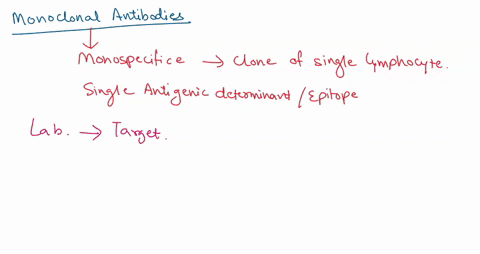 Monoclonal Antibodies
Monospecifice → Clone of single lymphocyte.
Single Antigenic determinant / Epitope
Lab. → Target.